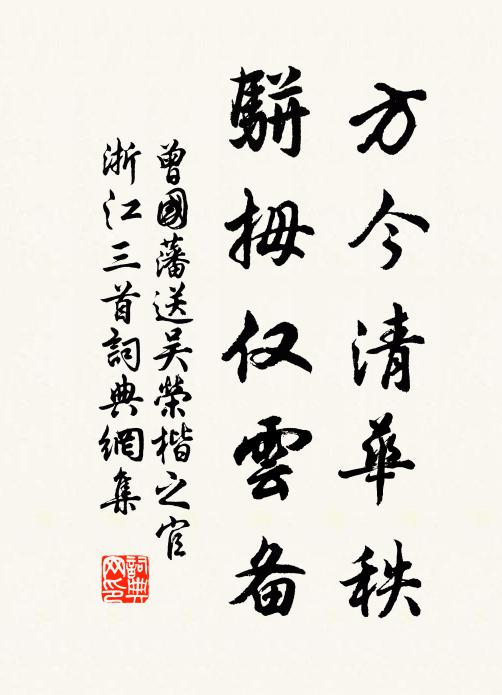 方今清華秩
駢拇仅雲备
曾國藩送吴榮楷之官
浙江三首詞典網集
詞典网印